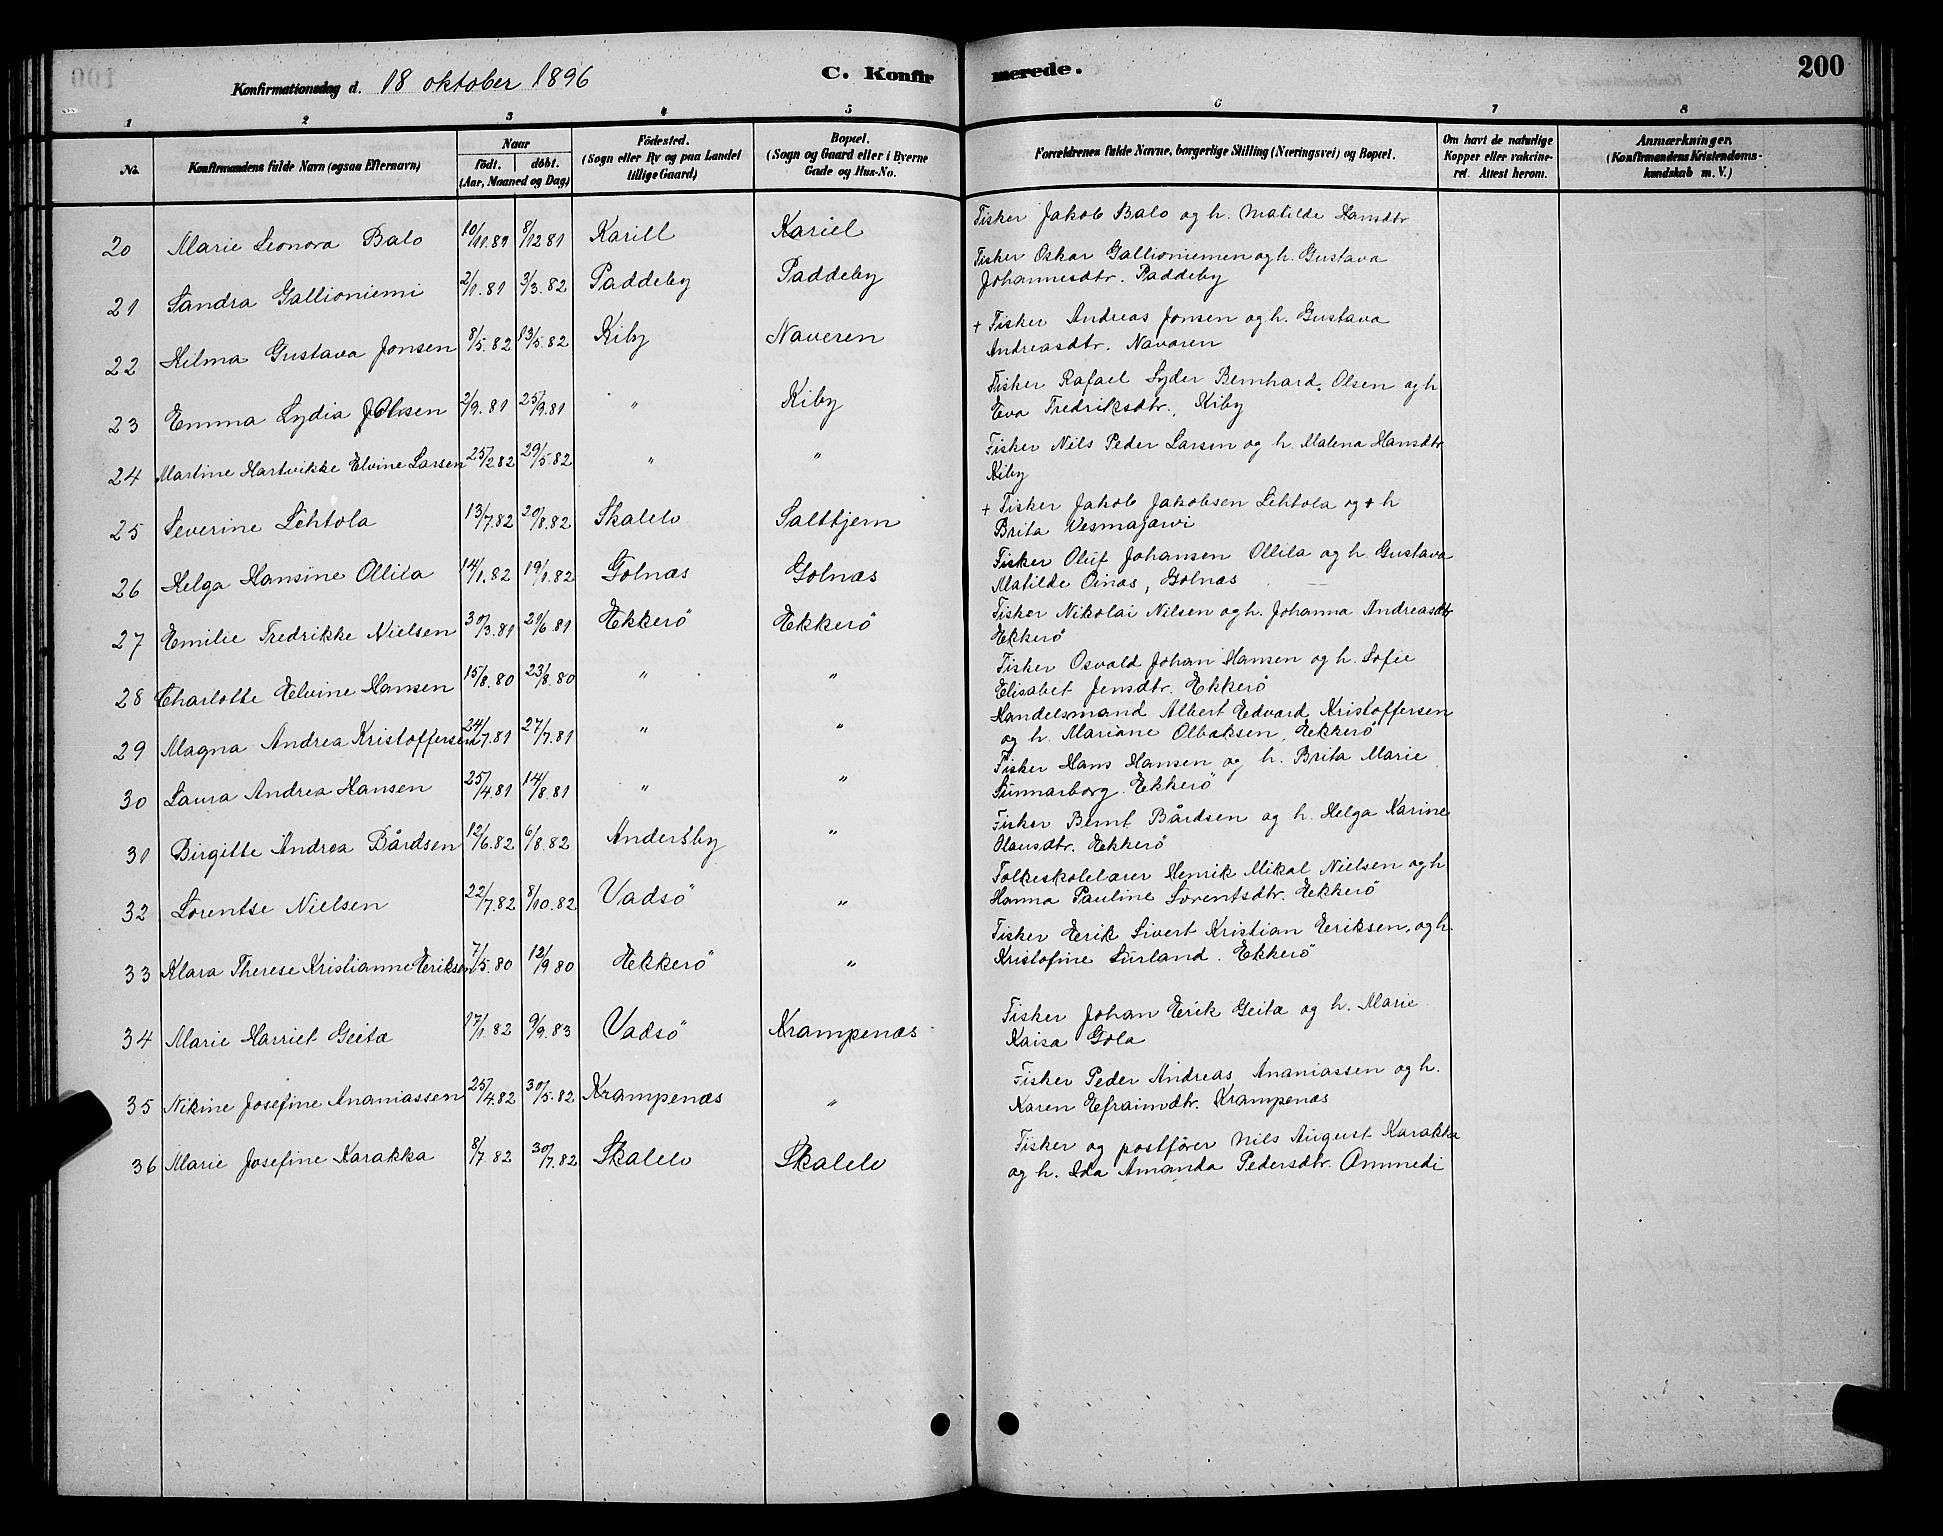 Konfirmationsdag d. 18 oktober 1896 C. Konfirmerede. 200
1 2 3 4 5 6 7 8
No. Konfirmandens fulde Navn (ogsaa Efternavn) Naar födt. döbt. (Aar, Maaned og Dag) Födested. (Sogn eller By og paa Landet tillige Gaard) Bopæl. (Sogn og Gaard eller i Byerne Gade og Hus-No. Forældrenes fulde Navne, borgerlige Stilling (Næringsvei) og Bopæl. Om havt de naturlige Kopper eller vakcineret. Attest herom. Anmærkninger. (Konfirmandens Kristendomskundskab m. V.)
20 Marie Leonora Balo 10/11.81 8/12 81 Karill Kariel Fisker Jakob Balo og h. Matilde Hansdtr
21 Sandra Gallioniemi 2/1.81 3/3.82 Paddeby Paddeby Fisker Oskar Gallioniemen og h. Gustava
Johannesdtr. Paddeby
22 Hilma Gustava Jonsen 8/5.82 13/5.82 Kiby Naveren + Fisker Andreas Jonsen og h. Gustava
Andreasdtr. Navaren
23 Emma Lydia Olsen 2/9.81 25/9.81 " Kiby Fisker Rafael Lyder Bernhard Olsen og h
Eva Fredriksdtr., Kiby
24 Martine Hartvikke Elvine Larsen 25/2.82 29/5.82 " " Fisker Nils Peder Larsen og h. Malena Hansdtr
Kiby
25 Severine Lehtola 13/7.82 20/8.82 Skalelv Saltbjern + Fisker Jakob Jakobsen Lehtola og + h
Brita Vesmajarvi
26 Helga Hansine Ollila 14/1.82 19/1.82 Golnæs Golnæs Fisker Oluf Johansen Ollila og h. Gustava
Matilde Oinas, Golnæs
27 Emilie Fredrikke Nielsen 30/3.81 21/6.81 Ekkerö Ekkerö Fisker Nikolai Nilsen og h. Johanna Andreasdtr
Ekkerö
28 Charlotte Elvine Hansen 15/8.80 23/8.80 " " Fisker Osvald Johan Hansen og h. Sofie
Elisabet Jensdtr. Ekkerö
29 Magna Andrea Kristoffersen 24/7.81 27/7.81 " " Handelsmand Albert Edvard Kristoffersen
og h. Mariane Olbæksen, Ekkerö
30 Laura Andrea Hansen 25/4.81 14/8.81 " " Fisker Hans Hansen og h. Brita Marie
Sunnarborg. Ekkerö
31 Birgitte Andrea Bårdsen 12/6.82 6/8.82 Andersby " Fisker Bernt Bårdsen og h. Helga Karine
Olausdtr. Ekkerö
32 Lorentse Nielsen 22/7.82 8/10.82 Vadsö " Folkeskolelærer Henrik Mikal Nielsen og h
Hanna Pauline Lorentsdtr. Ekkerö
33 Klara Therese Kristianne Eriksen 7/5.80 12/9.80 Ekkerö " Fisker Erik Sivert Kristian Eriksen, og h.
Kristofine Surland. Ekkerö
34 Marie Harriet Geita 17/1.82 9/9.83 Vadsö Krampenæs Fisker Johan Erik Geita og h. Marie
Kaisa Gola
35 Nikine Josefine Ananiassen 25/4.82 30/5.82 Krampenæs " Fisker Peder Andreas Ananiassen og h.
Karen Efraimdtr. Krampenæs
36 Marie Josefine Karakka 8/7.82 30/7.82 Skalelv Skalelv Fisker og postförer Nils August Karakka
og h. Ida Amanda Pedersdtr. Ommedi